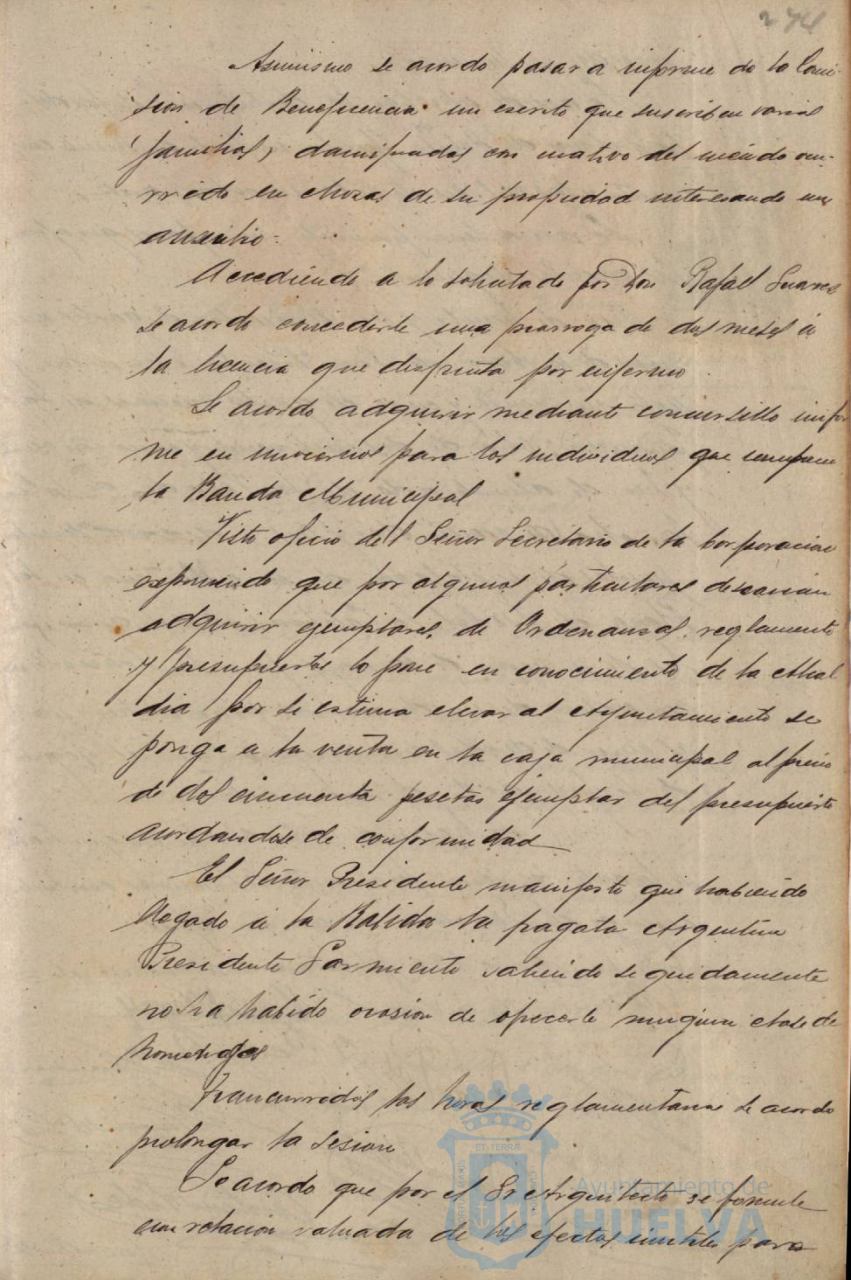 274
Asimismo se acordo pasar a informe de la Comi-
sion de Beneficencia un escrito que suscriben varias
familias, damnificadas con motivo del incendio ocu-
rrido en chozas de su propiedad interesando un
auxilio.
Accediendo a lo solicitado por Don Rafael Suarez
se acordo concederle una prorroga de dos meses á
la licencia que disfruta por enfermo.
Se acordo adquirir mediante concursillo unifor
me en invierno para los individuos que componen
la Banda Municipal
Visto oficio del Señor Secretario de la Corporacion
exponiendo que por algunos particulares desearian
adquirir ejemplares de Ordenanzas, reglamento
y presupuestos lo pone en conocimiento de la Alcal
dia por si estima elevar al Ayuntamiento se
ponga a la venta en la caja municipal al precio
de dos cincuenta pesetas ejemplar del presupuesto
acordandose de conformidad
El Señor Presidente manifesto que habiendo
llegado á la Rabida la fragata Argentina
Presidente Sarmiento saliendo seguidamente
no ha habido ocasion de ofrecerle ninguna clase de
homenajes
Trancurridas las horas reglamentarias se acordo
prolongar la sesion
Se acordo que por el Sr Arquitecto se formule
una relacion valuada de los efectos inutiles para
ET TERRA
Ayuntamiento de
HUELVA